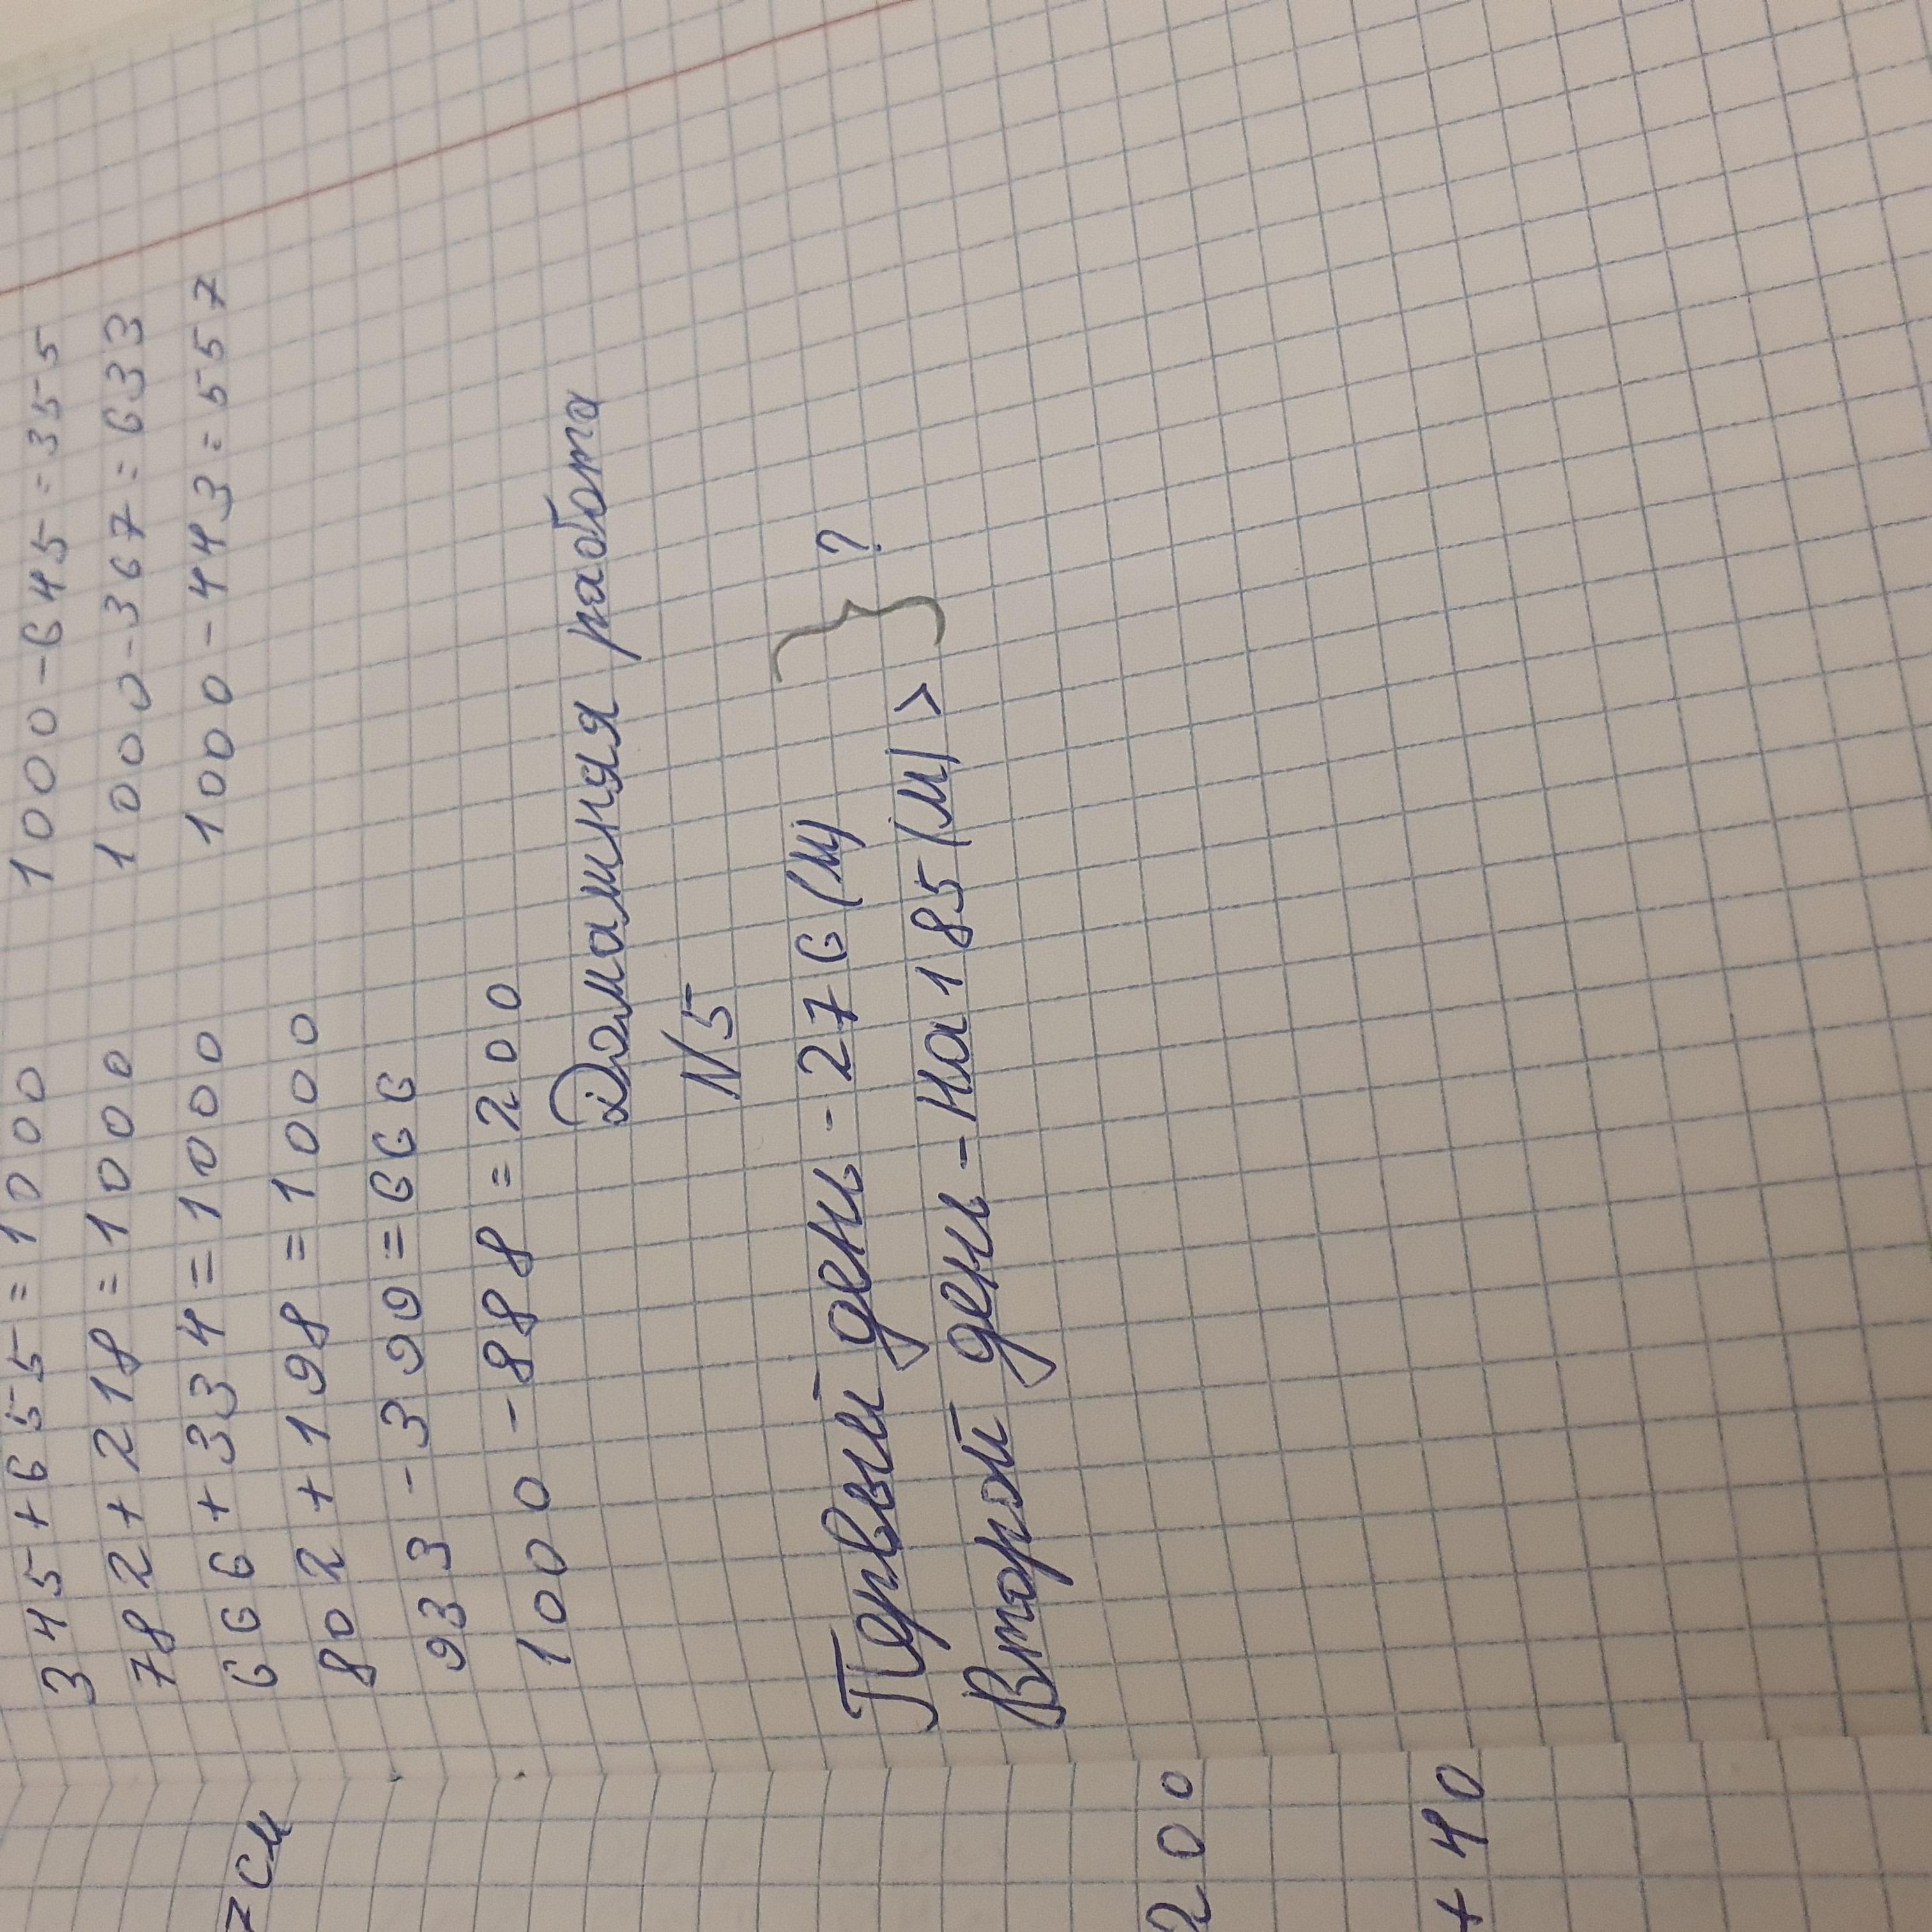 345+655=1000 1000-645=355
782+218=1000 1000-367=633
666+334=1000 1000-443=557
802+198=1000
933-399=666
1000-888=200
Домашняя работа
N5
Первый день-276(м)
Второй день-На185(м)> } ?
7см
200
+40